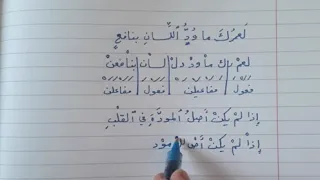 لَعَمْرُكَ ما وُدُّ اللِّسَانِ بِنَافِعٍ
لعمْرك ما ودْدلْ لسان بنافعنْ
فعولُ مفاعيلن فعول مفاعلن
إذا لَمْ يَكُنْ أَصْلُ المودَّةِ في القَلْبِ
إذا لَمْ يكنْ أصْ لُلْمودْ